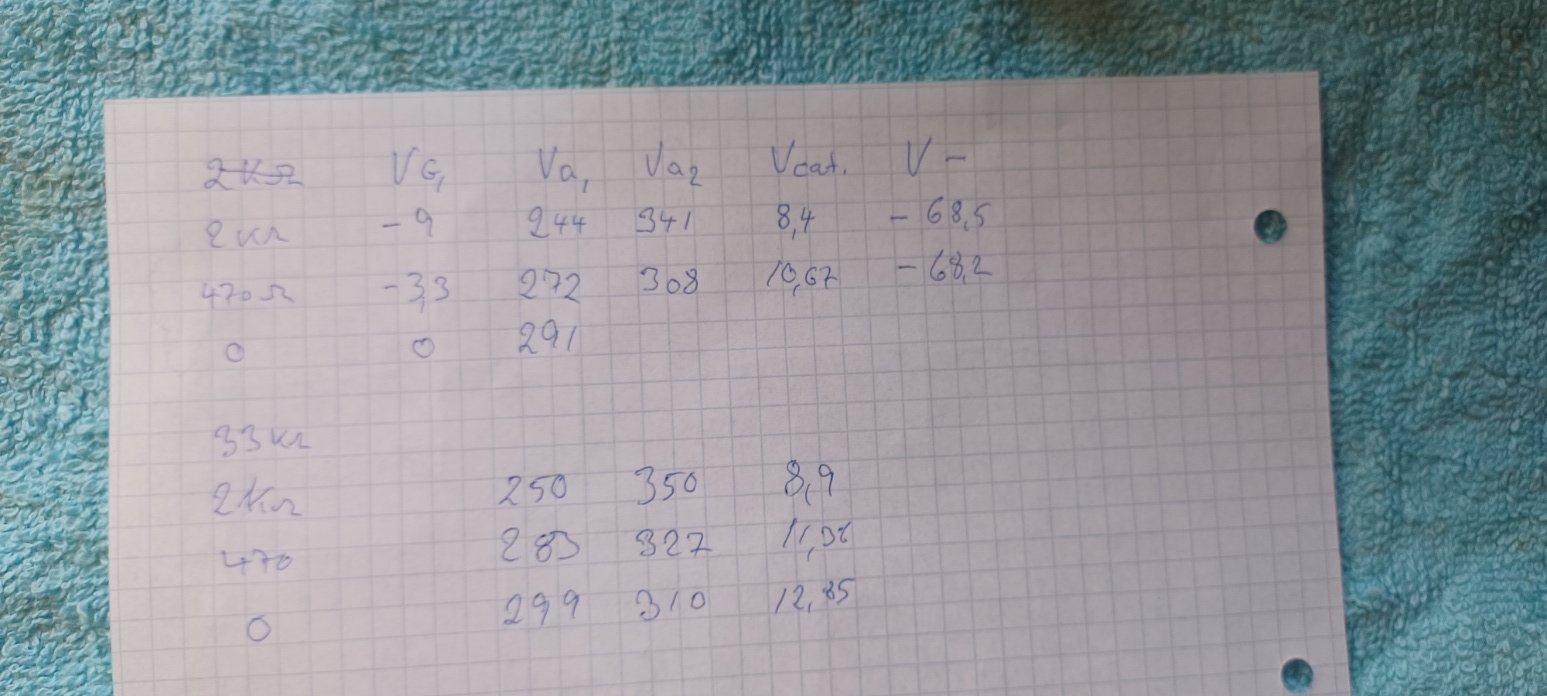 2KΩ VG1 Va1 Va2 Vcat. V-
2KΩ -9 244 341 8,4 -68,5
470Ω -3,3 272 308 10,67 -68,2
0 0 291
33KΩ
2KΩ 250 350 8,9
470 283 327
0 299 310 12,85